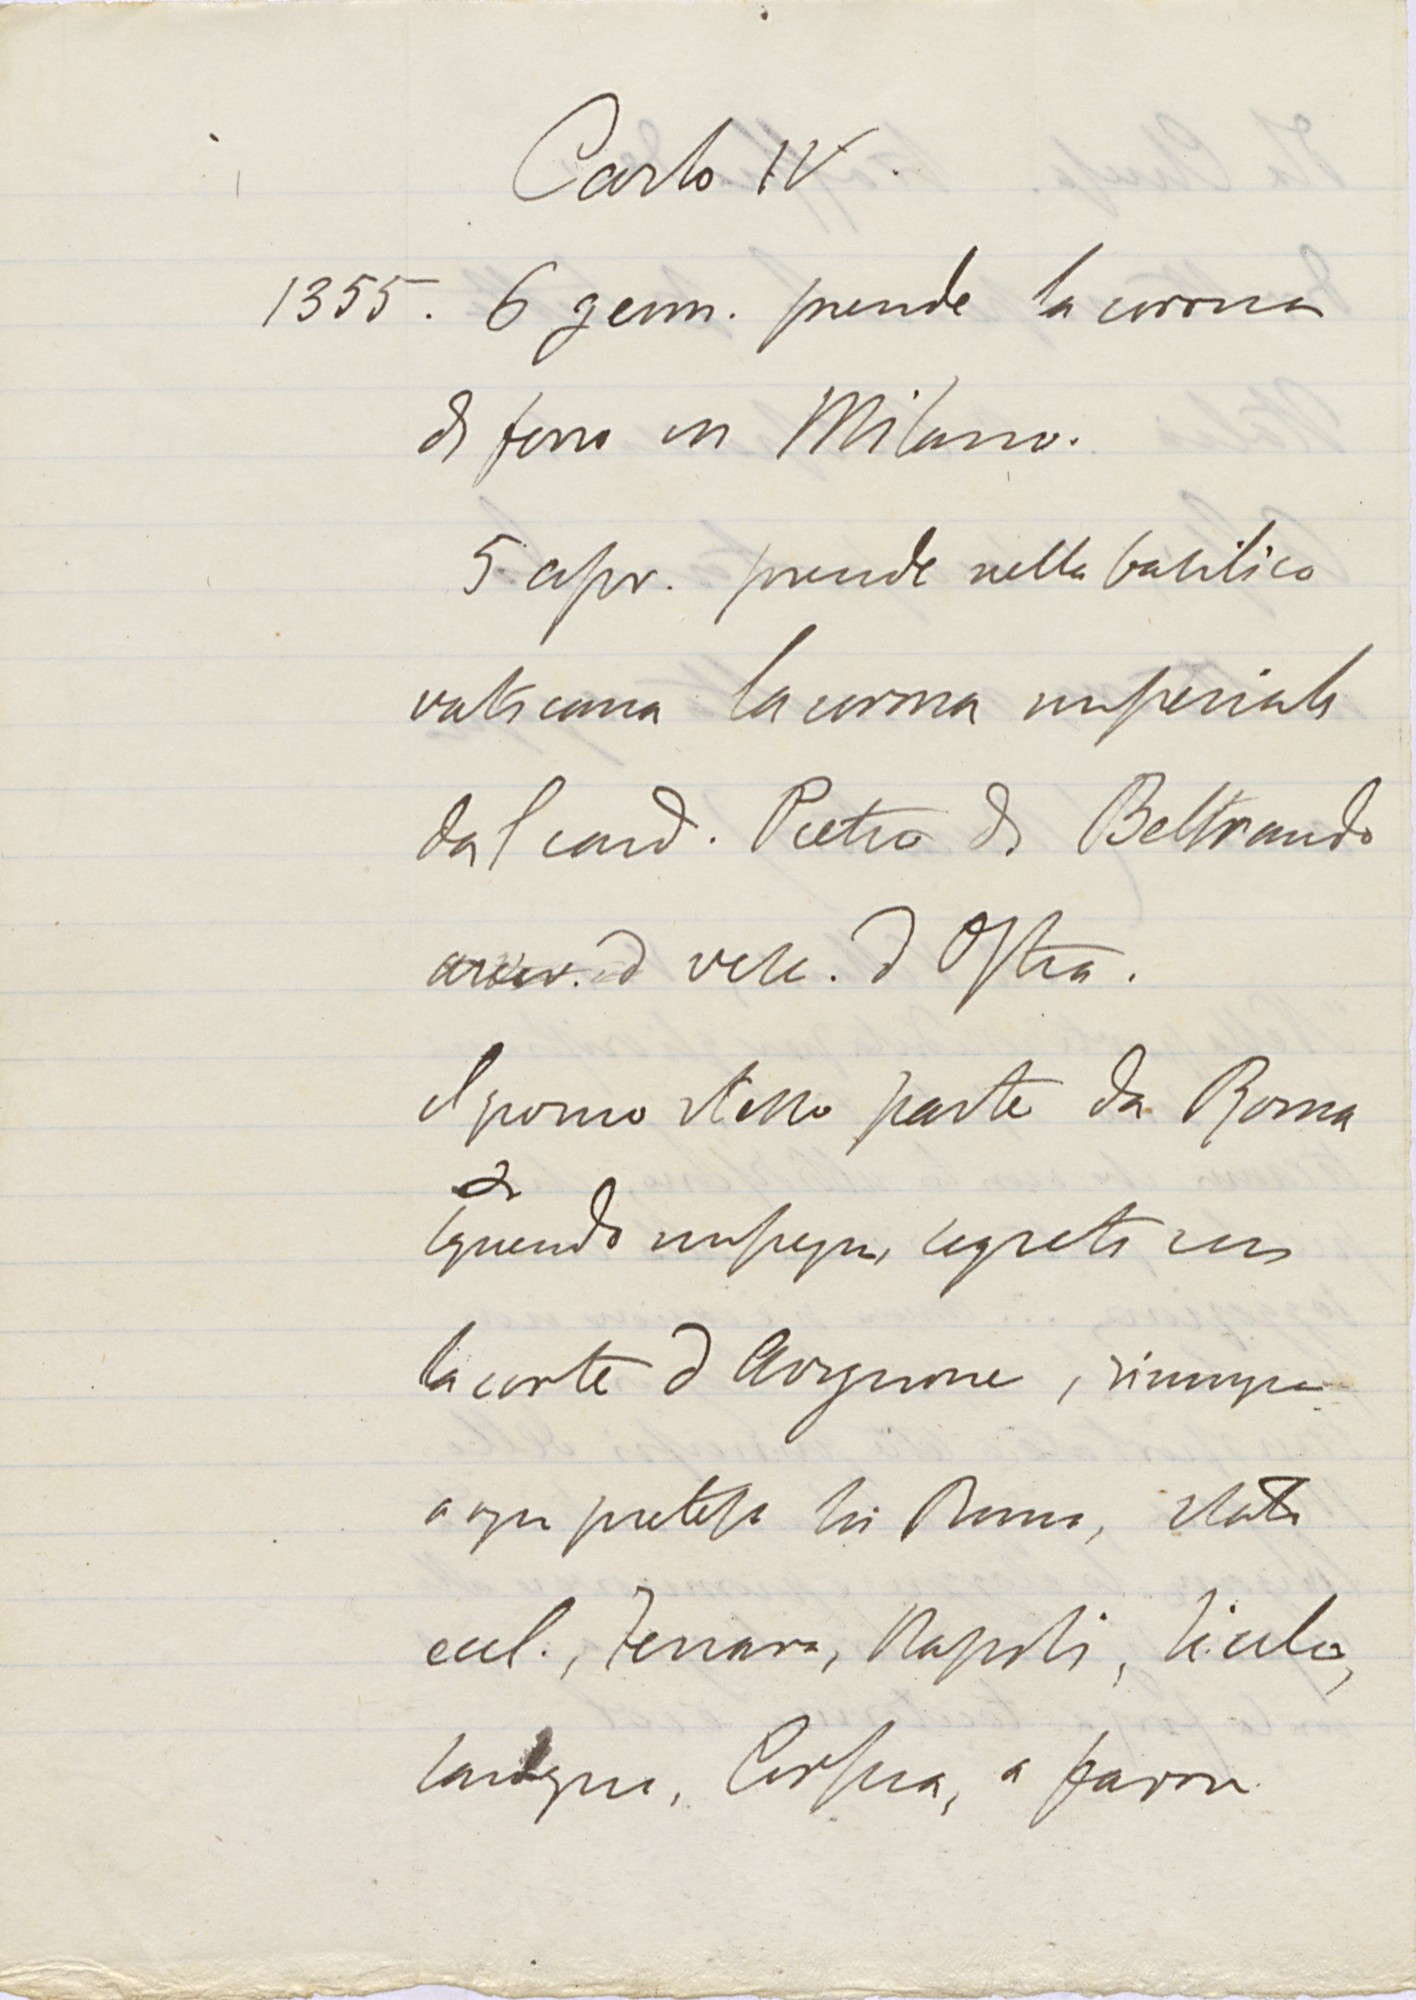 Carlo IV.
1355. 6 genn. prende la corona
di ferro in Milano.
5 apr. prende nella basilica
vaticana la corona imperiale
dal card. Pietro di Beltrando
vesc. d'Ostia.
il giorno stesso parte da Roma
di
seguendo impegni segreti con
la corte d'Avignone, rinunzia
a ogni pretesa su Roma, stato
eccl., Ferrara, Napoli, Sicilia,
Sardegna, Corsica, a favore